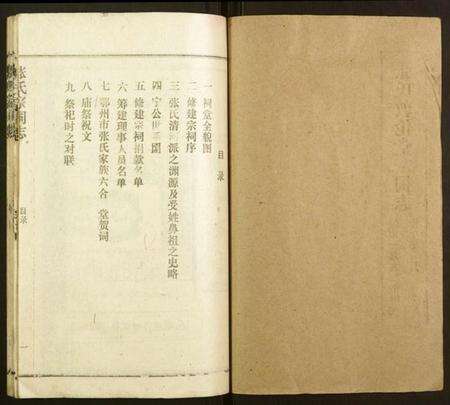 目录
一 祠堂全貌图
二 修建宗祠序
三 张氏清河派之渊源及受姓鼻祖之史略
四 公世系图
五 修建宗祠捐款名单
六 筹建理事人员名单
七 鄂州市张氏家族六合 堂贺词
八 庙祭祝文
九 祭祀时之对联
张氏宗祠志
目录